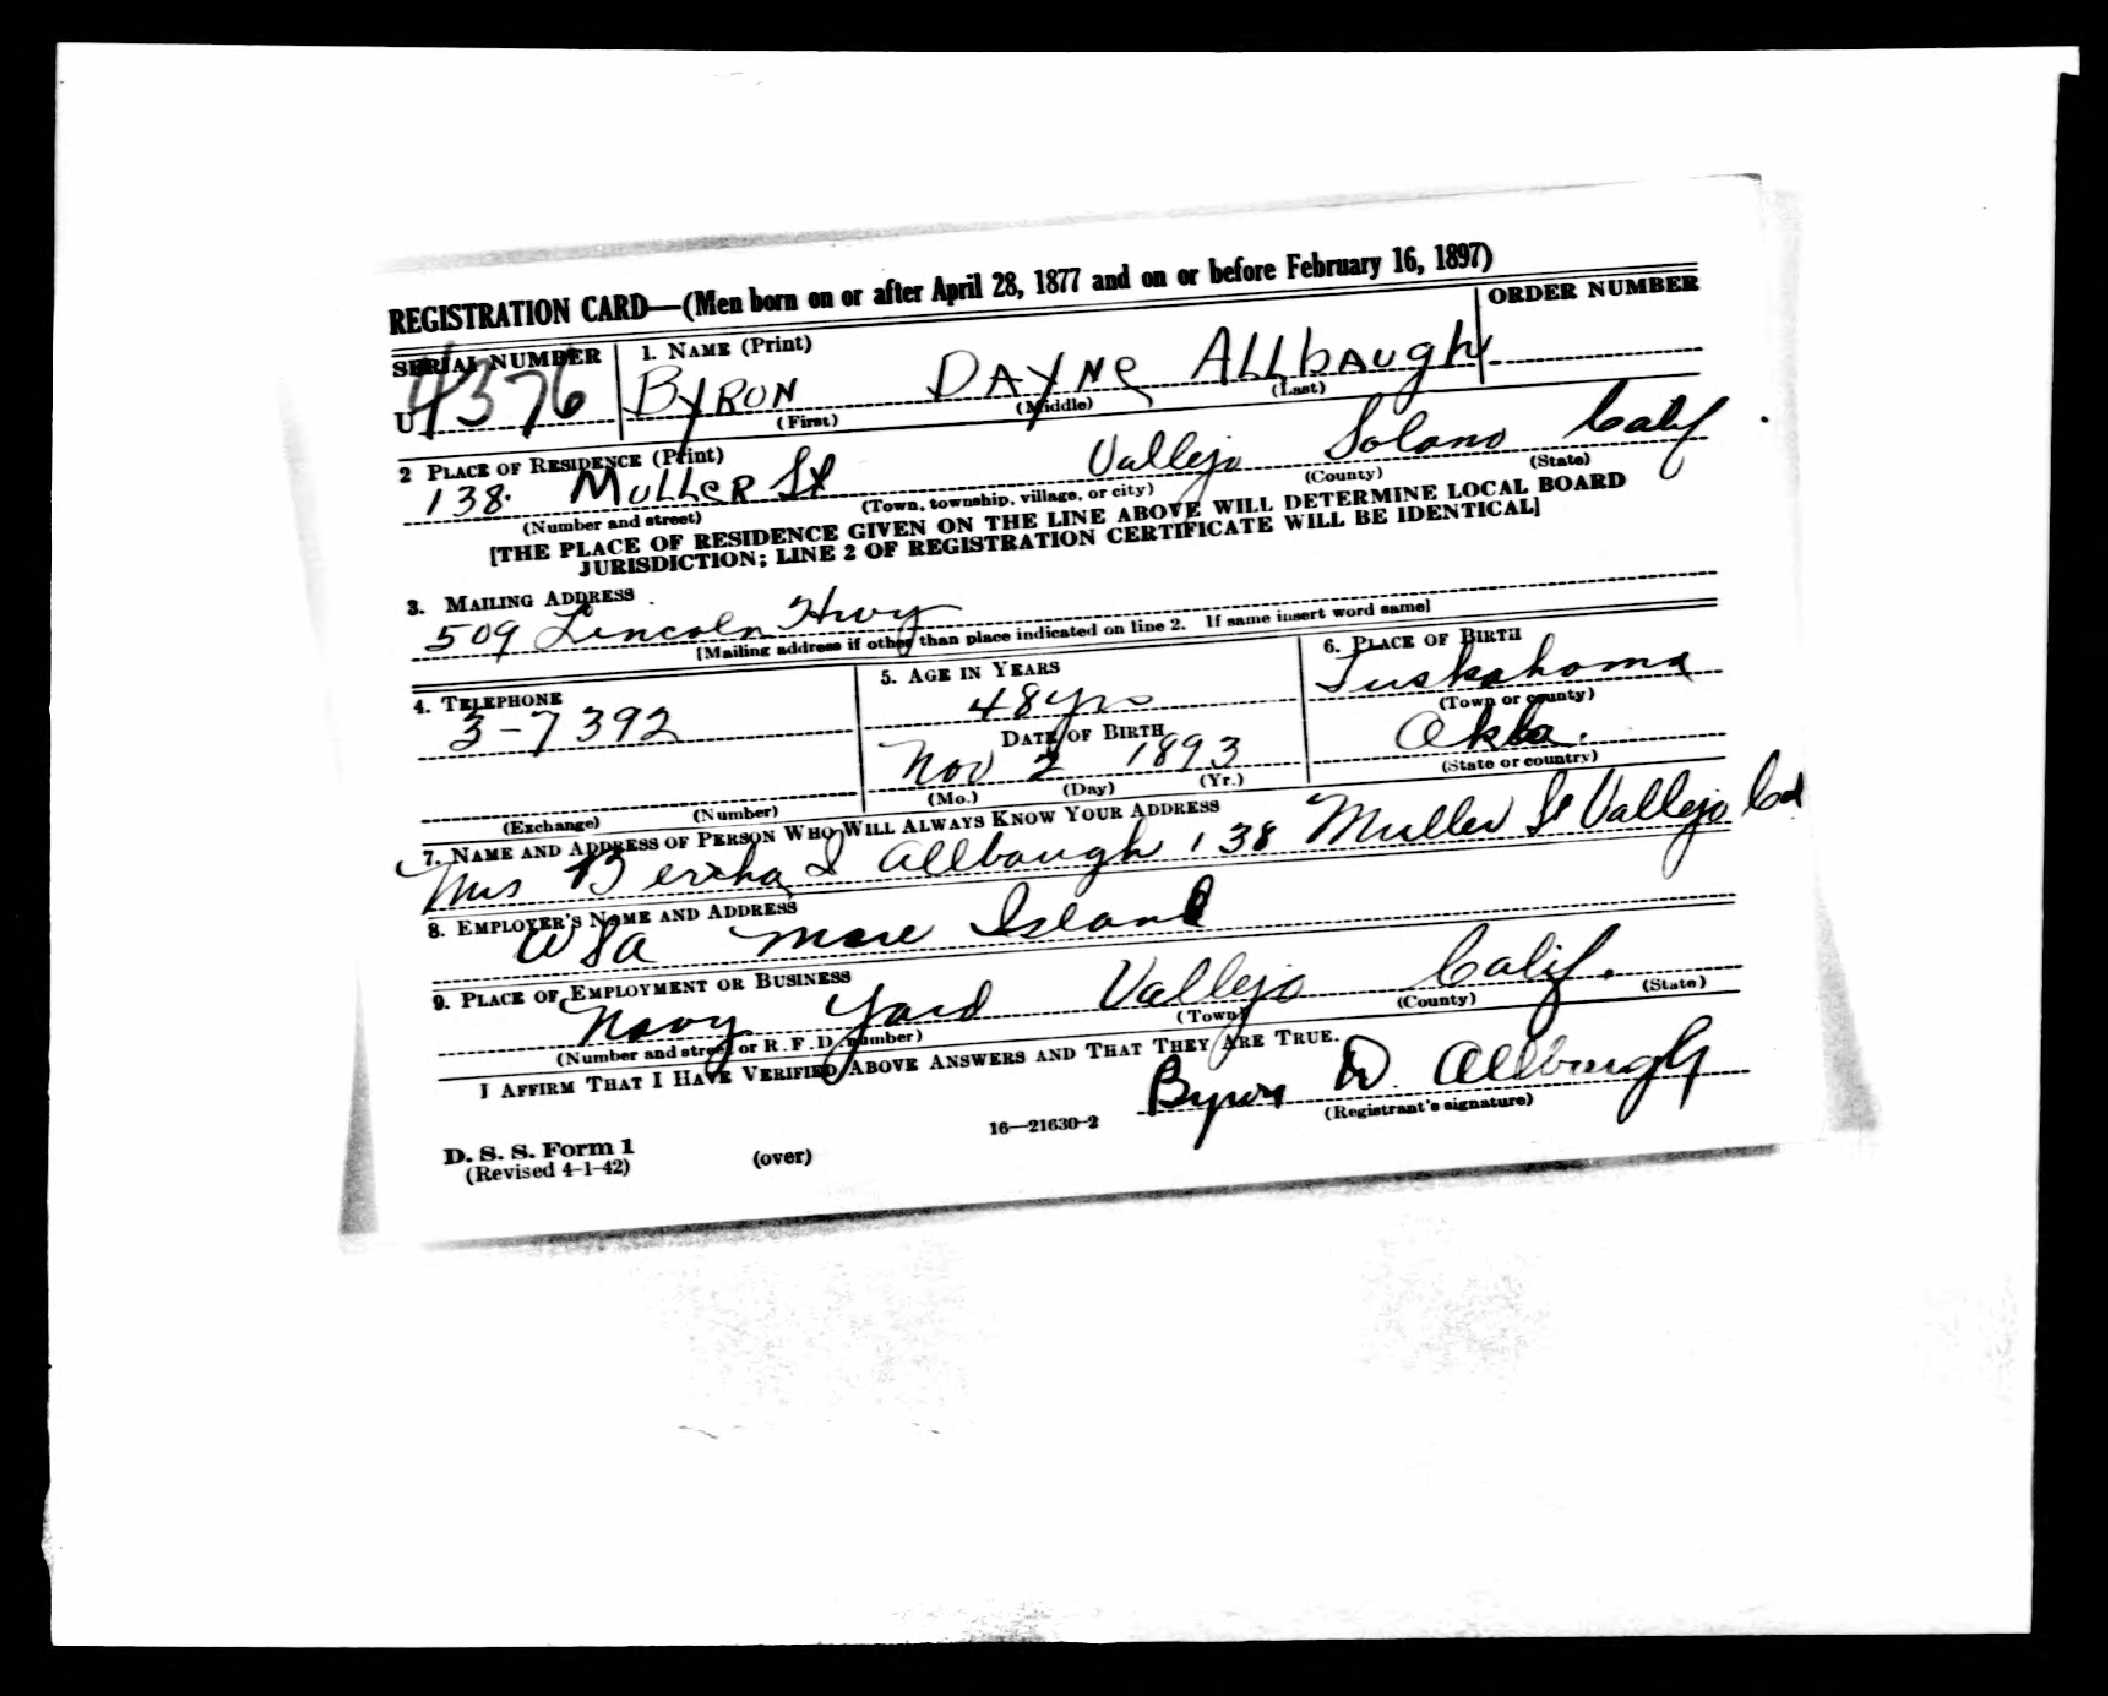 REGISTRATION CARD—(Men born on or after April 28, 1877 and on or before February 16, 1897)
SERIAL NUMBER 1. NAME (Print) ORDER NUMBER
U 4376 BYRON DAYNE ALLBAUGH
(First) (Middle) (Last)
2 PLACE OF RESIDENCE (Print)
138. MULLER St Vallejo Solano Calif
(Number and street) (Town, township, village, or city) (County) (State)
[THE PLACE OF RESIDENCE GIVEN ON THE LINE ABOVE WILL DETERMINE LOCAL BOARD
JURISDICTION; LINE 2 OF REGISTRATION CERTIFICATE WILL BE IDENTICAL]
3. MAILING ADDRESS
509 Lincoln Hwy
[Mailing address if other than place indicated on line 2. If same insert word same]
4. TELEPHONE 5. AGE IN YEARS 6. PLACE OF BIRTH
3-7392 48 yrs Tuskahoma
(Town or county)
DATE OF BIRTH Okla.
Nov 2 1893
(Mo.) (Day) (Yr.) (State or country)
(Exchange) (Number)
7. NAME AND ADDRESS OF PERSON WHO WILL ALWAYS KNOW YOUR ADDRESS
Mrs Bertha I Allbaugh 138 Muller St Vallejo Cal
8. EMPLOYER'S NAME AND ADDRESS
Mare Island
9. PLACE OF EMPLOYMENT OR BUSINESS
Navy Yard Vallejo Calif.
(Number and street or R. F. D. number) (Town) (County) (State)
I AFFIRM THAT I HAVE VERIFIED ABOVE ANSWERS AND THAT THEY ARE TRUE.
Byron D. Allbaugh
(Registrant's signature)
D. S. S. Form 1
(Revised 4-1-42) (over) 16—21630-2